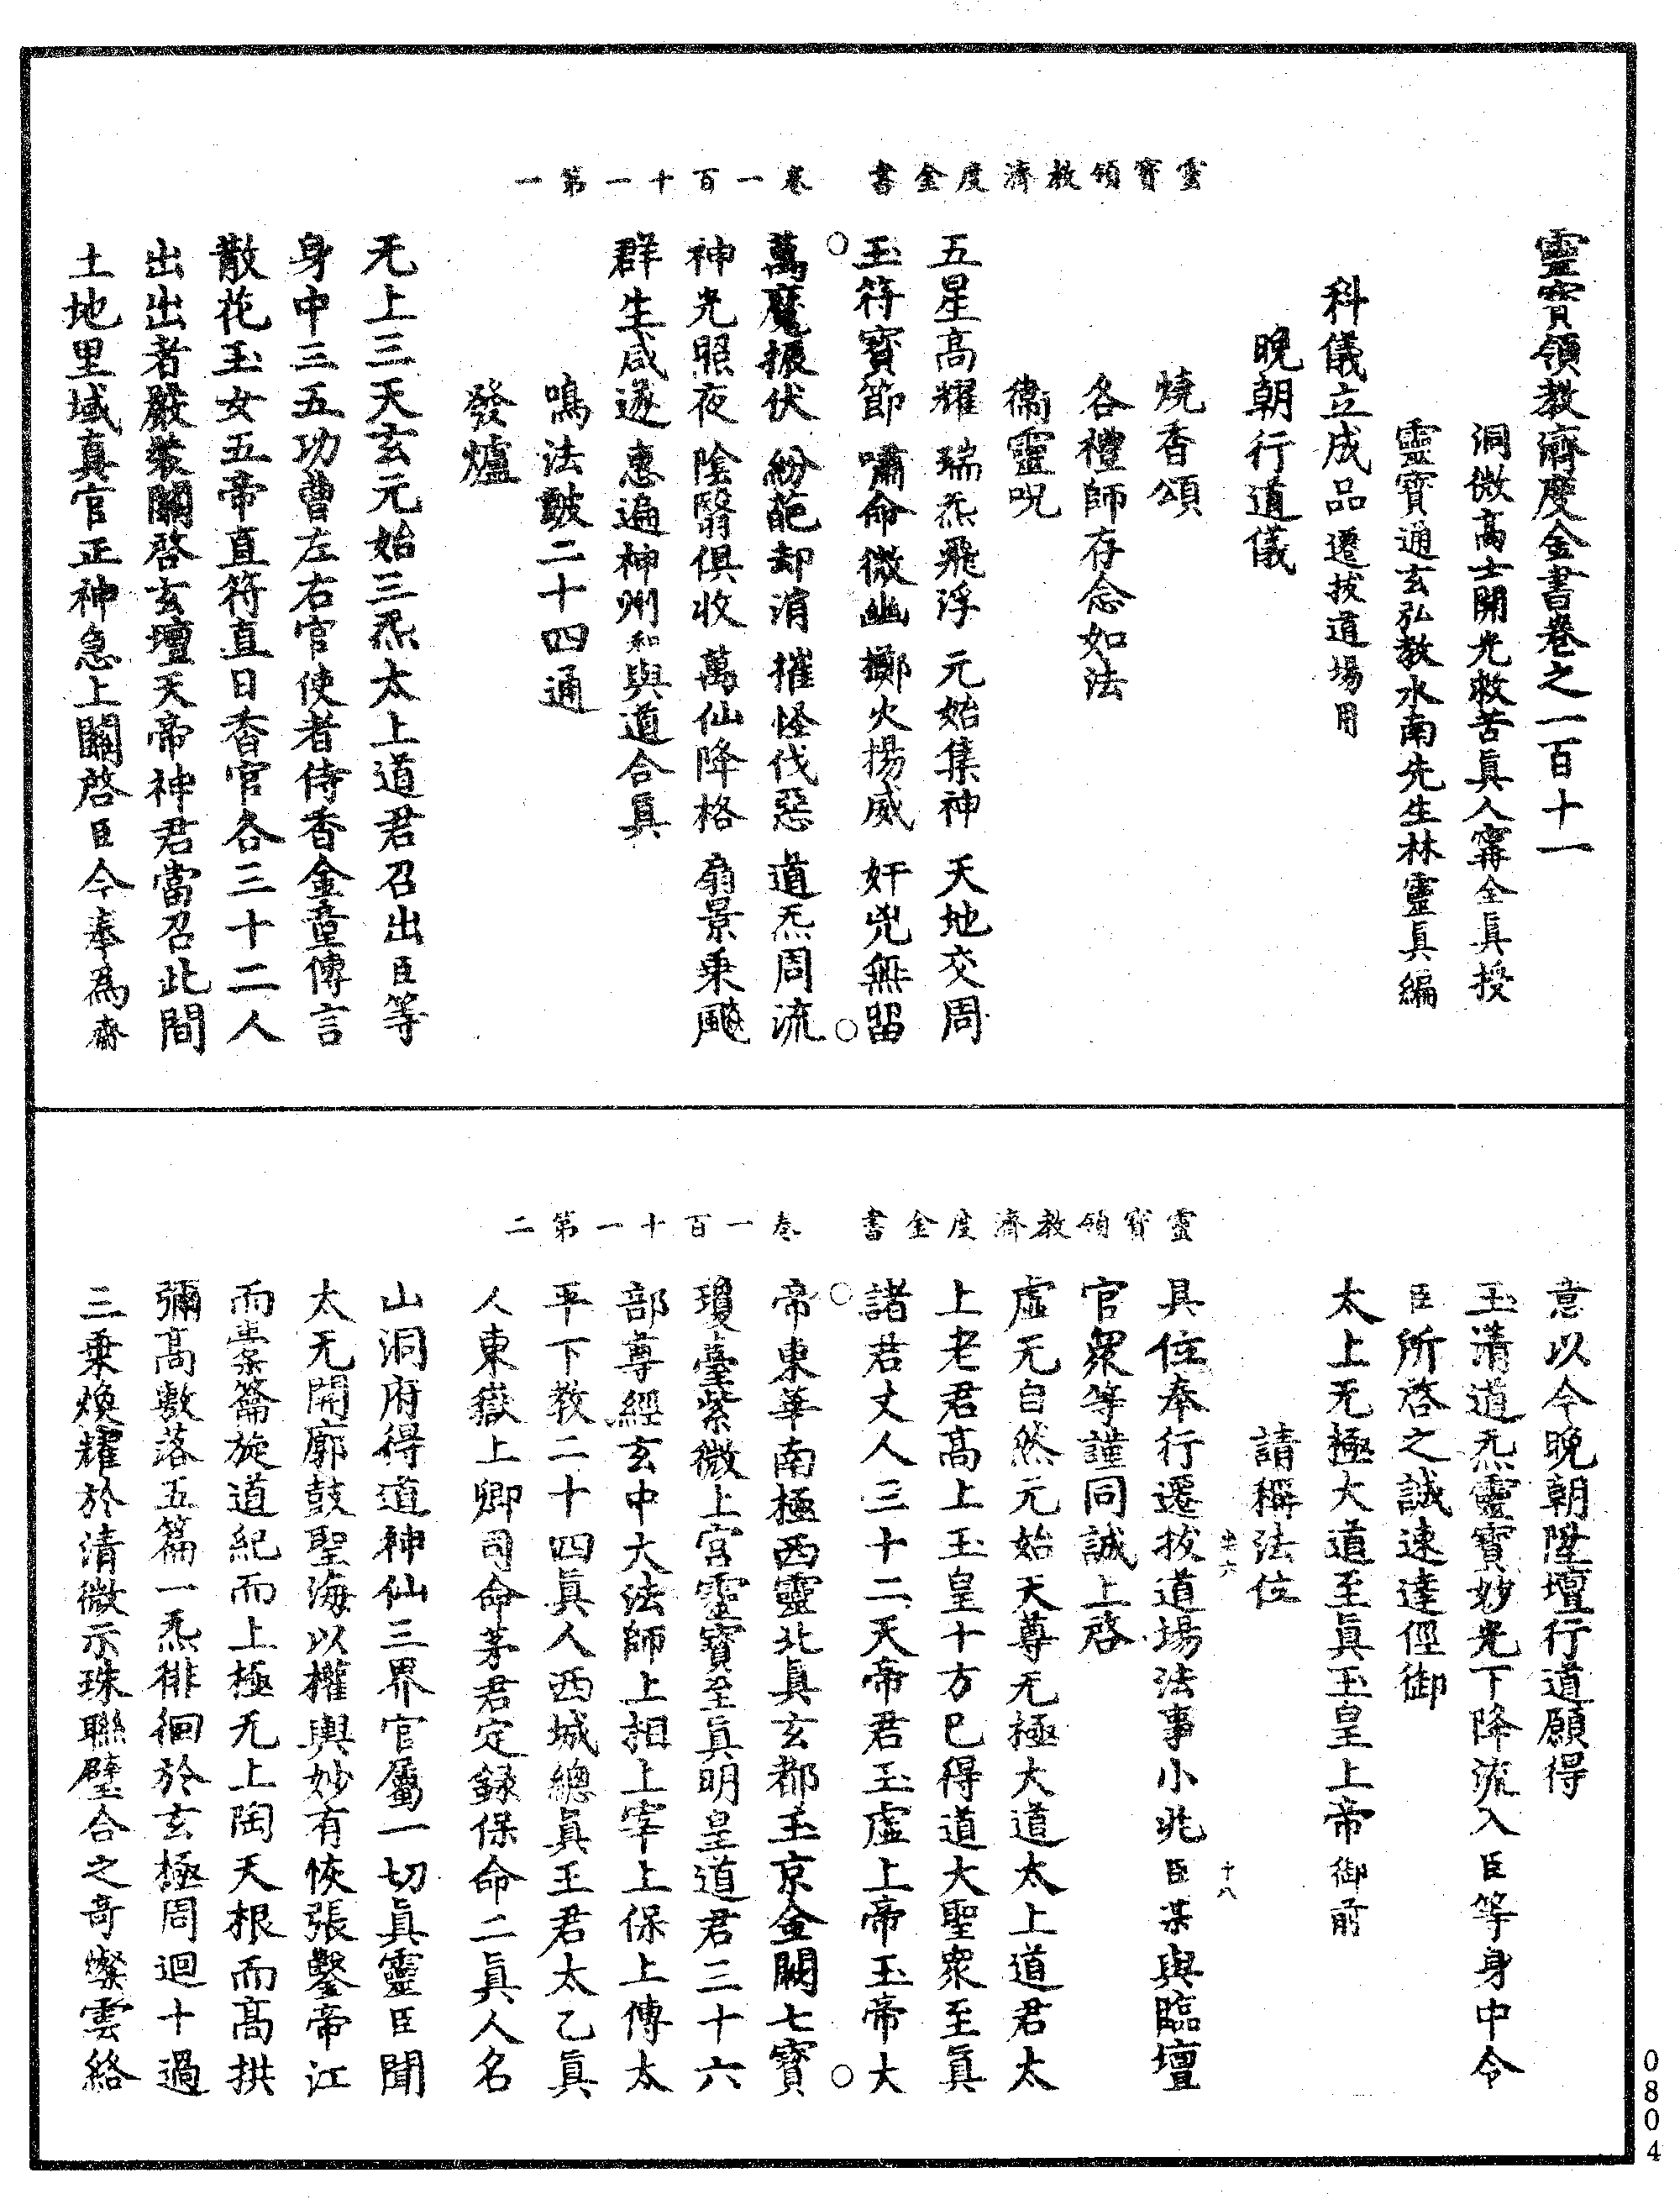 靈寳領教濟度金書　卷一百十一第一
靈寳領教濟度金書卷之一百十一
洞微高士開光救苦眞人甯全眞授
靈寳通玄弘教水南先生林靈眞編
科儀立成品遷拔道場用
晚朝行道儀
燒香頌
各禮師存念如法
衛靈呪
五星高耀　瑞炁飛浮　元始集神　天地交周
玉符寳節　嘯命微幽　擲火揚威　奸兇無留
萬魔振伏　紛葩却消　摧怪伐惡　道炁周流
神光照夜　陰翳俱收　萬仙降格　扇景乗飈
群生咸遂　惠遍神州和與道合眞
鳴法鼓二十四通
發爐
无上三天玄元始三炁太上道君召出臣等
身中三五功曹左右官使者侍香金童傳言
散花玉女五帝直符直日香官各三十二人
出出者嚴裝關啓玄壇天帝神君當召此間
土地里域真官正神急上關啓臣今奉爲齋
靈寳領教濟度金書　卷一百十一第二
意以今晚朝陞壇行道願得
玉清道炁靈寳妙光下降流入臣等身中令
臣所啓之誠速達俓御
太上无極大道至眞玉皇上帝御前
請稱法位
具位奉行遷拔道場法事小兆臣某與臨壇
六　十八
官衆等謹同誠上啓
虛无自然元始天尊无極大道太上道君太
上老君高上玉皇十方已得道大聖衆至眞
諸君丈人三十二天帝君玉虛上帝玉帝大
帝東華南極西靈北眞玄都玉京金闕七寳
瓊臺紫微上宮靈寳至眞明皇道君三十六
部尊經玄中大法師上相上宰上保上傅太
平下教二十四眞人西城總眞王君太乙眞
人東嶽上卿司命茅君定録保命二眞人名
山洞府得道神仙三界官屬一切眞靈臣聞
太无開廓鼓聖海以權輿妙有恢張鑿帝江
而橐籥旋道紀而上極无上陶天根而高拱
彌高敷落五篇一炁徘徊於玄極周迴十過
三乗煥耀於清微示珠聯璧合之奇燦雲絡
0804